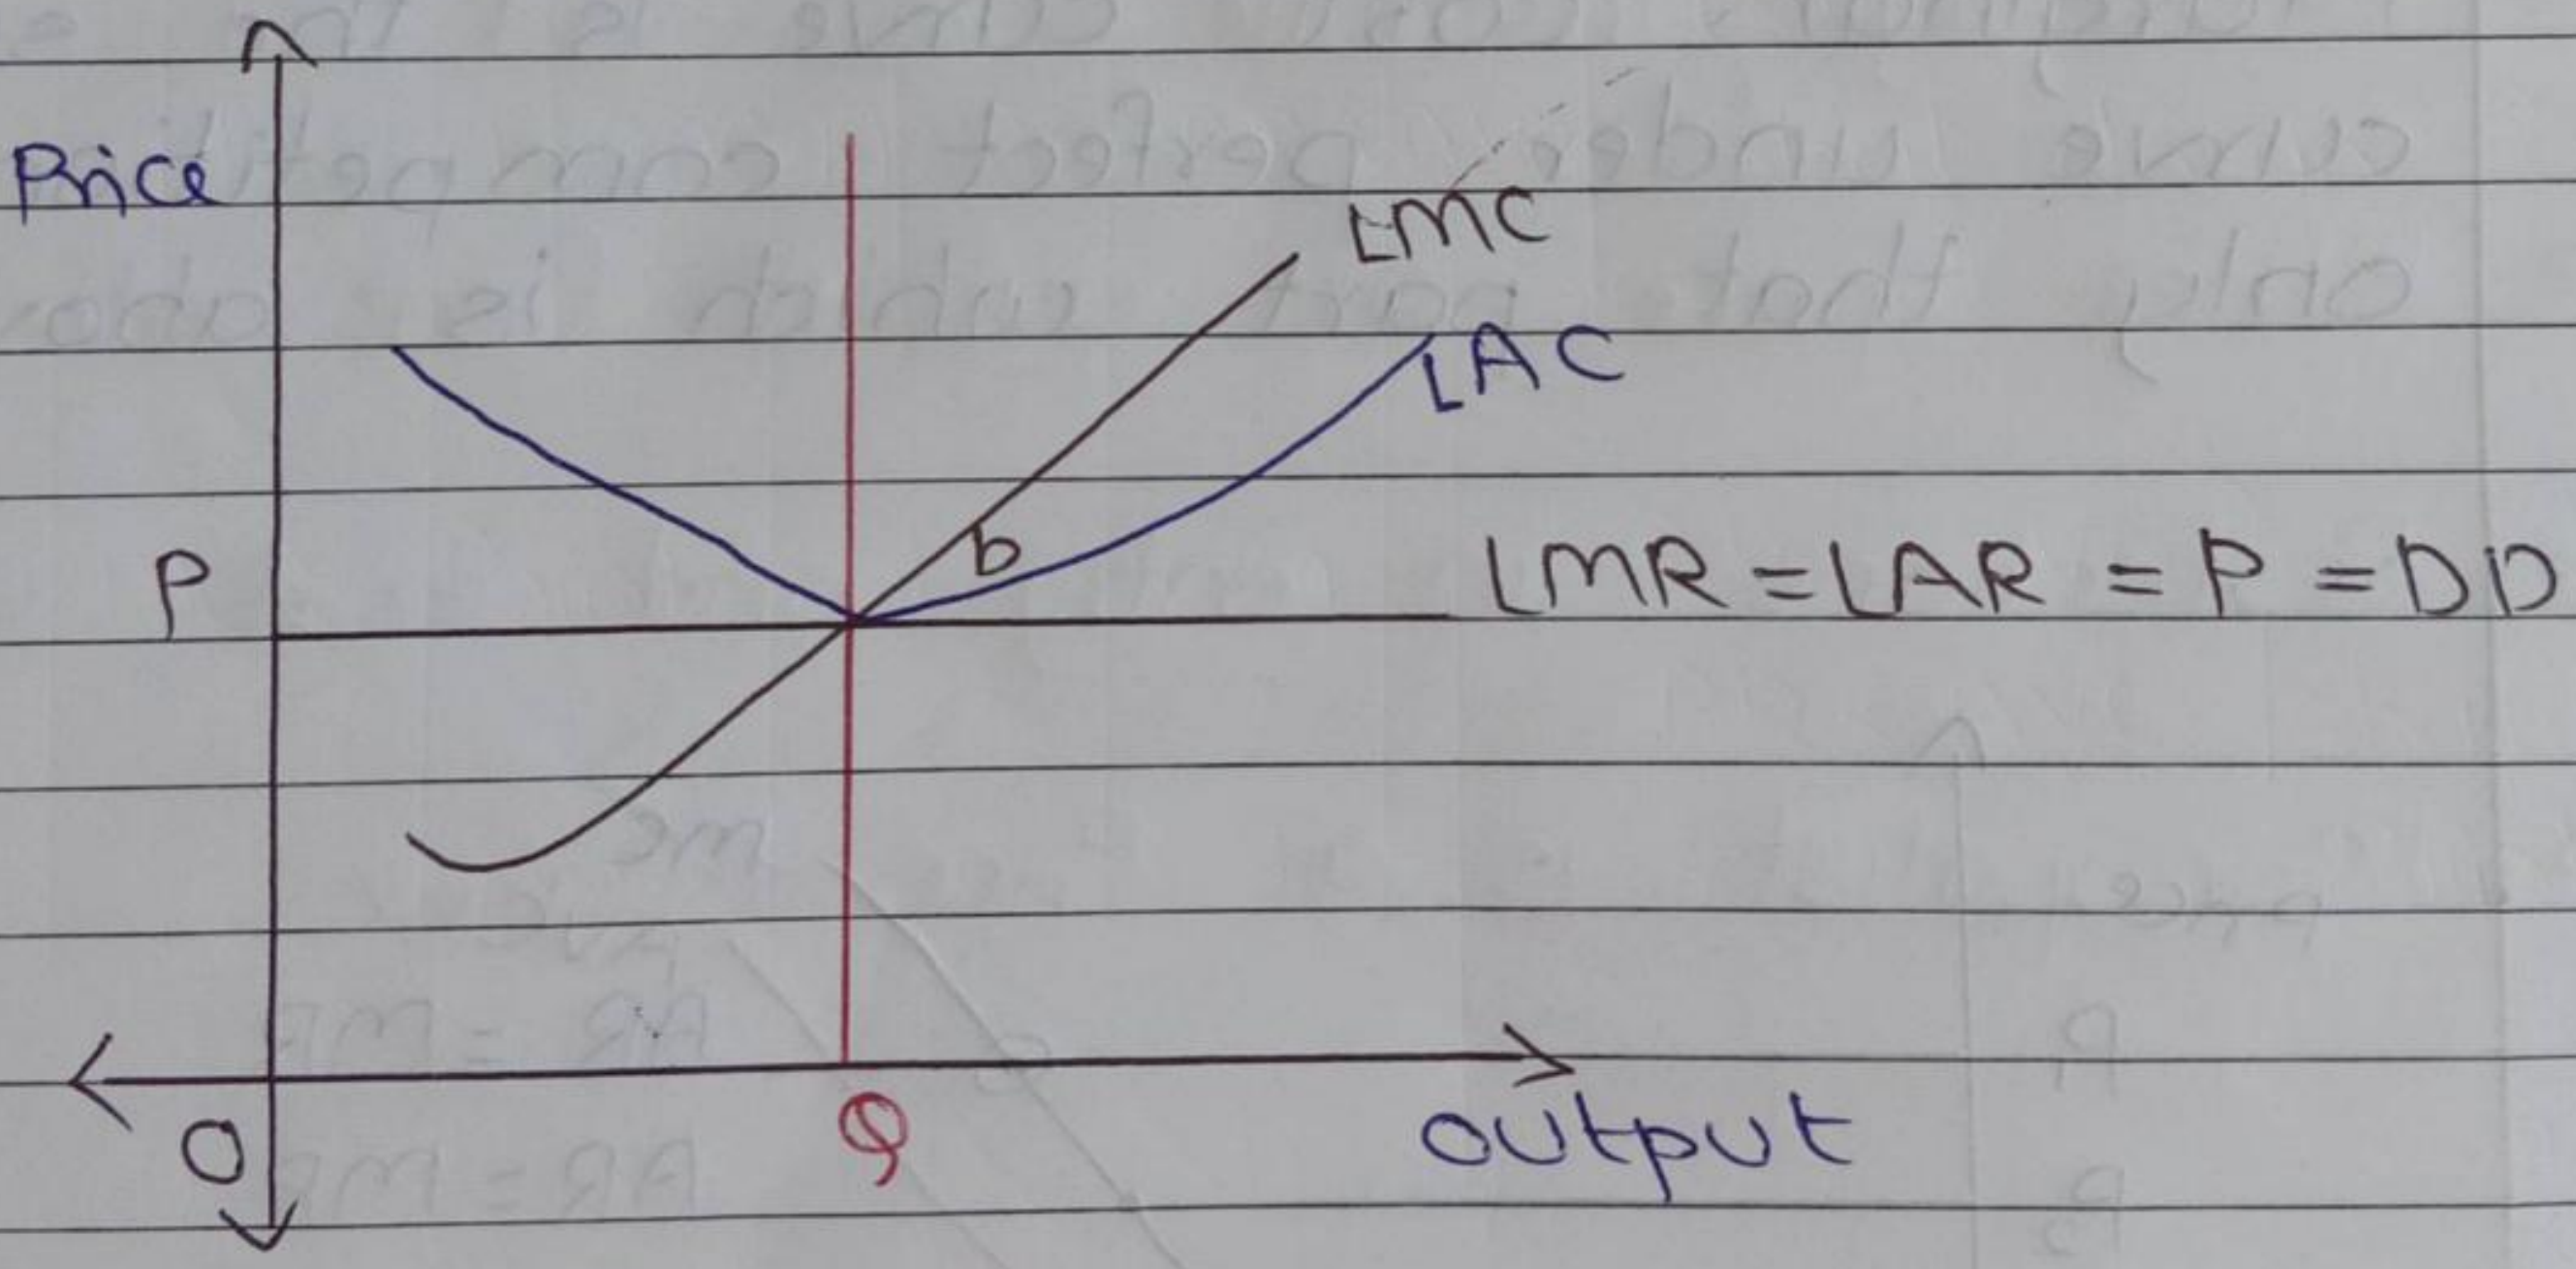 Price
LMC
LAC
b
P
LMR = LAR = P = DD
O
Q
output